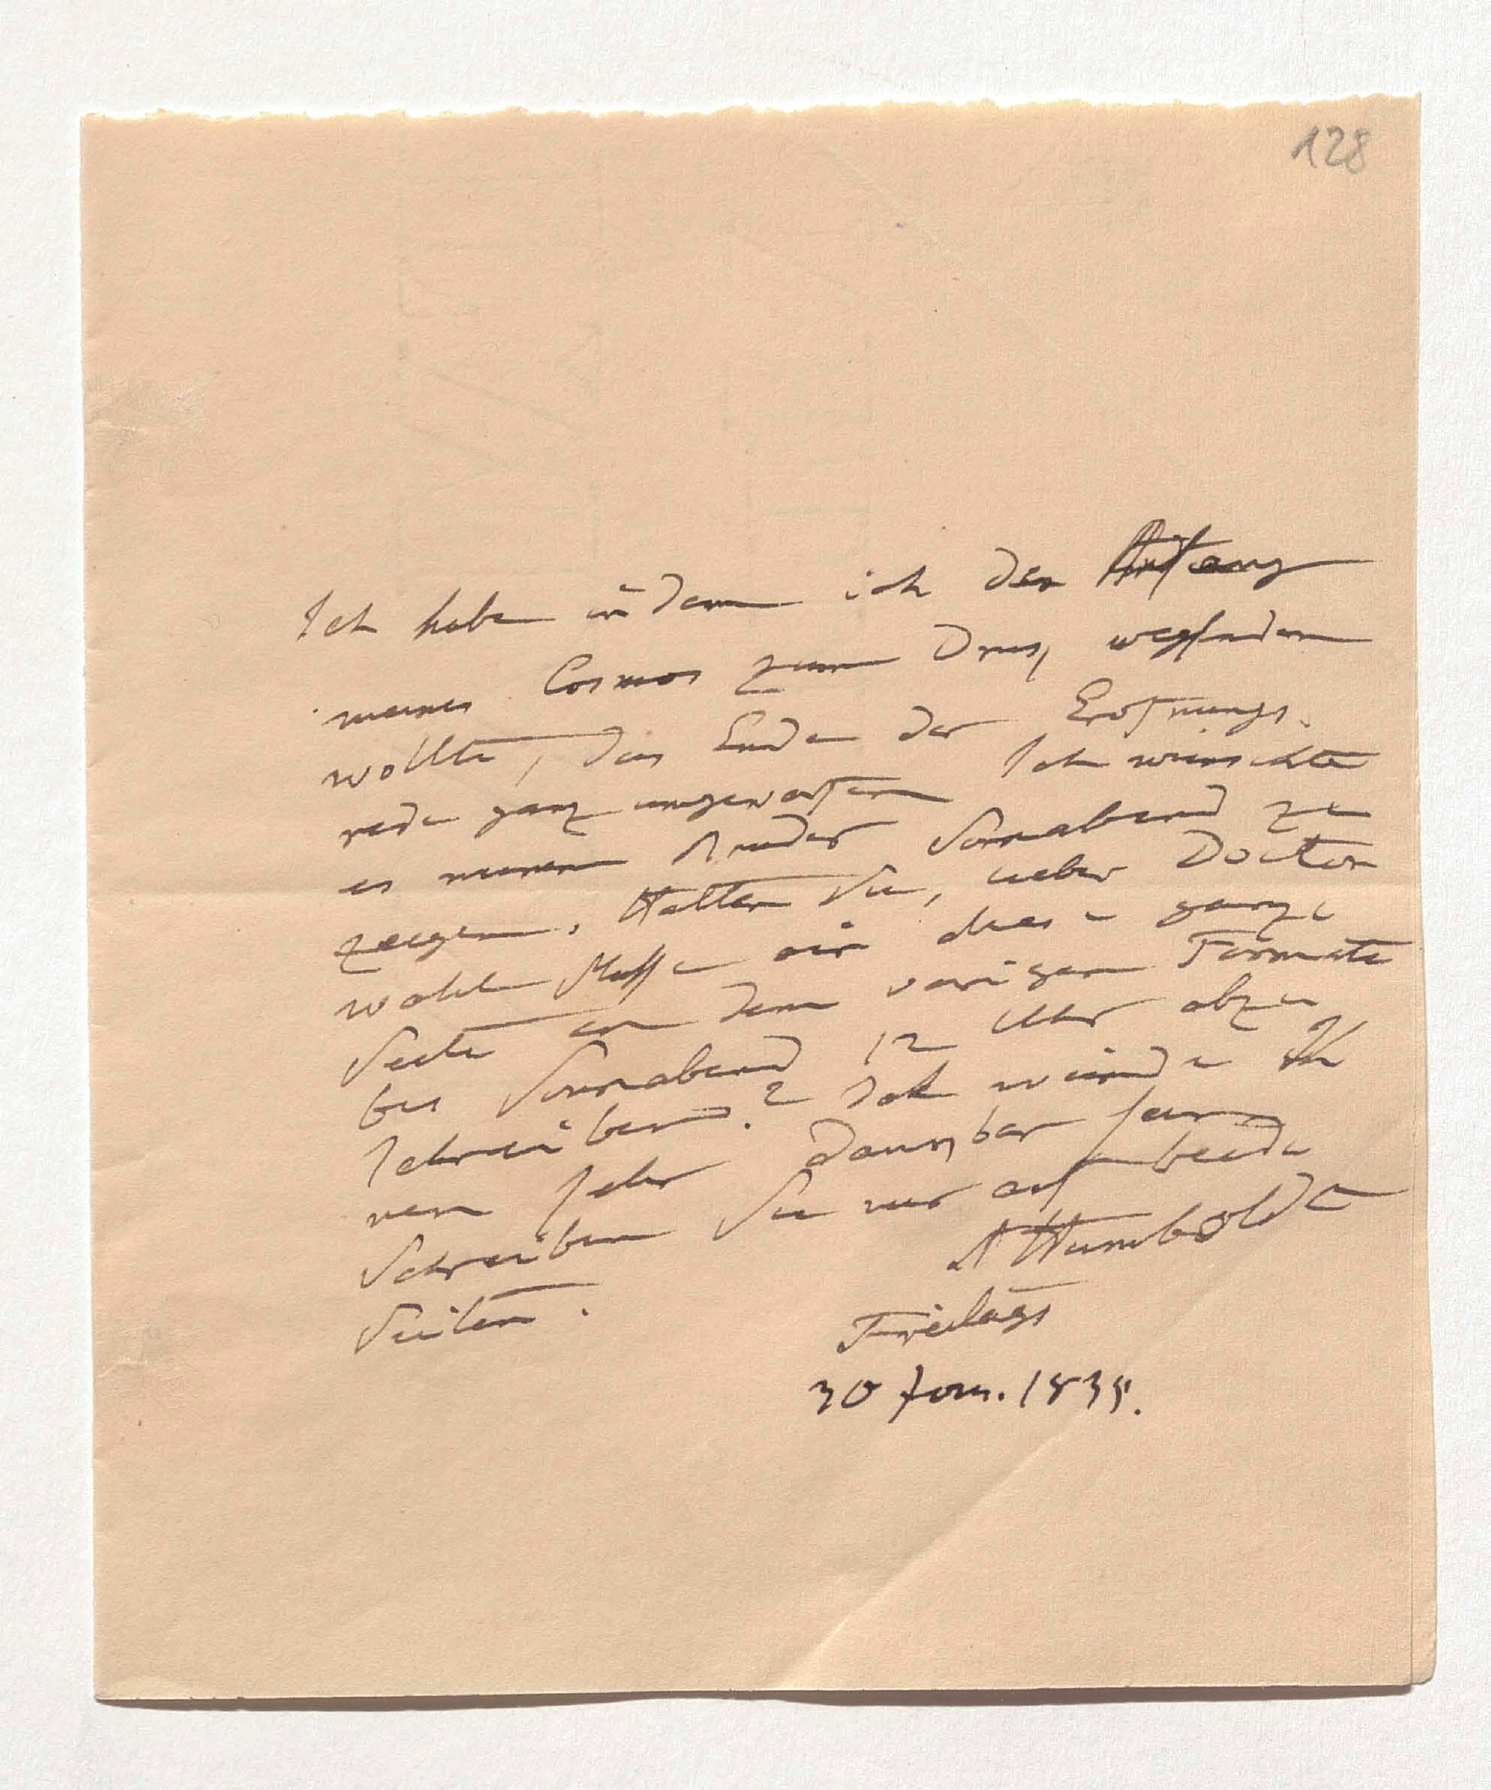 128
Ich habe indem ich den Anfang
meines Cosmos zum Druk wegsenden
wollte, das Ende der Eröfnungs-
rede ganz umgeworfen Ich wünschte
es meinem Bruder Sonnabend zu
zeigen. Hätten Sie, lieber Doctor
wohl Muße mir diese ganze
Seite in dem vorigen Formate
bis Sonnabend 12 Uhr abzu
schreiben? Ich würde Ih
nen sehr dankbar sein
Schreiben Sie nur auf beide
Seiten.
A Humboldt
Freitags
30 Jan. 1835.